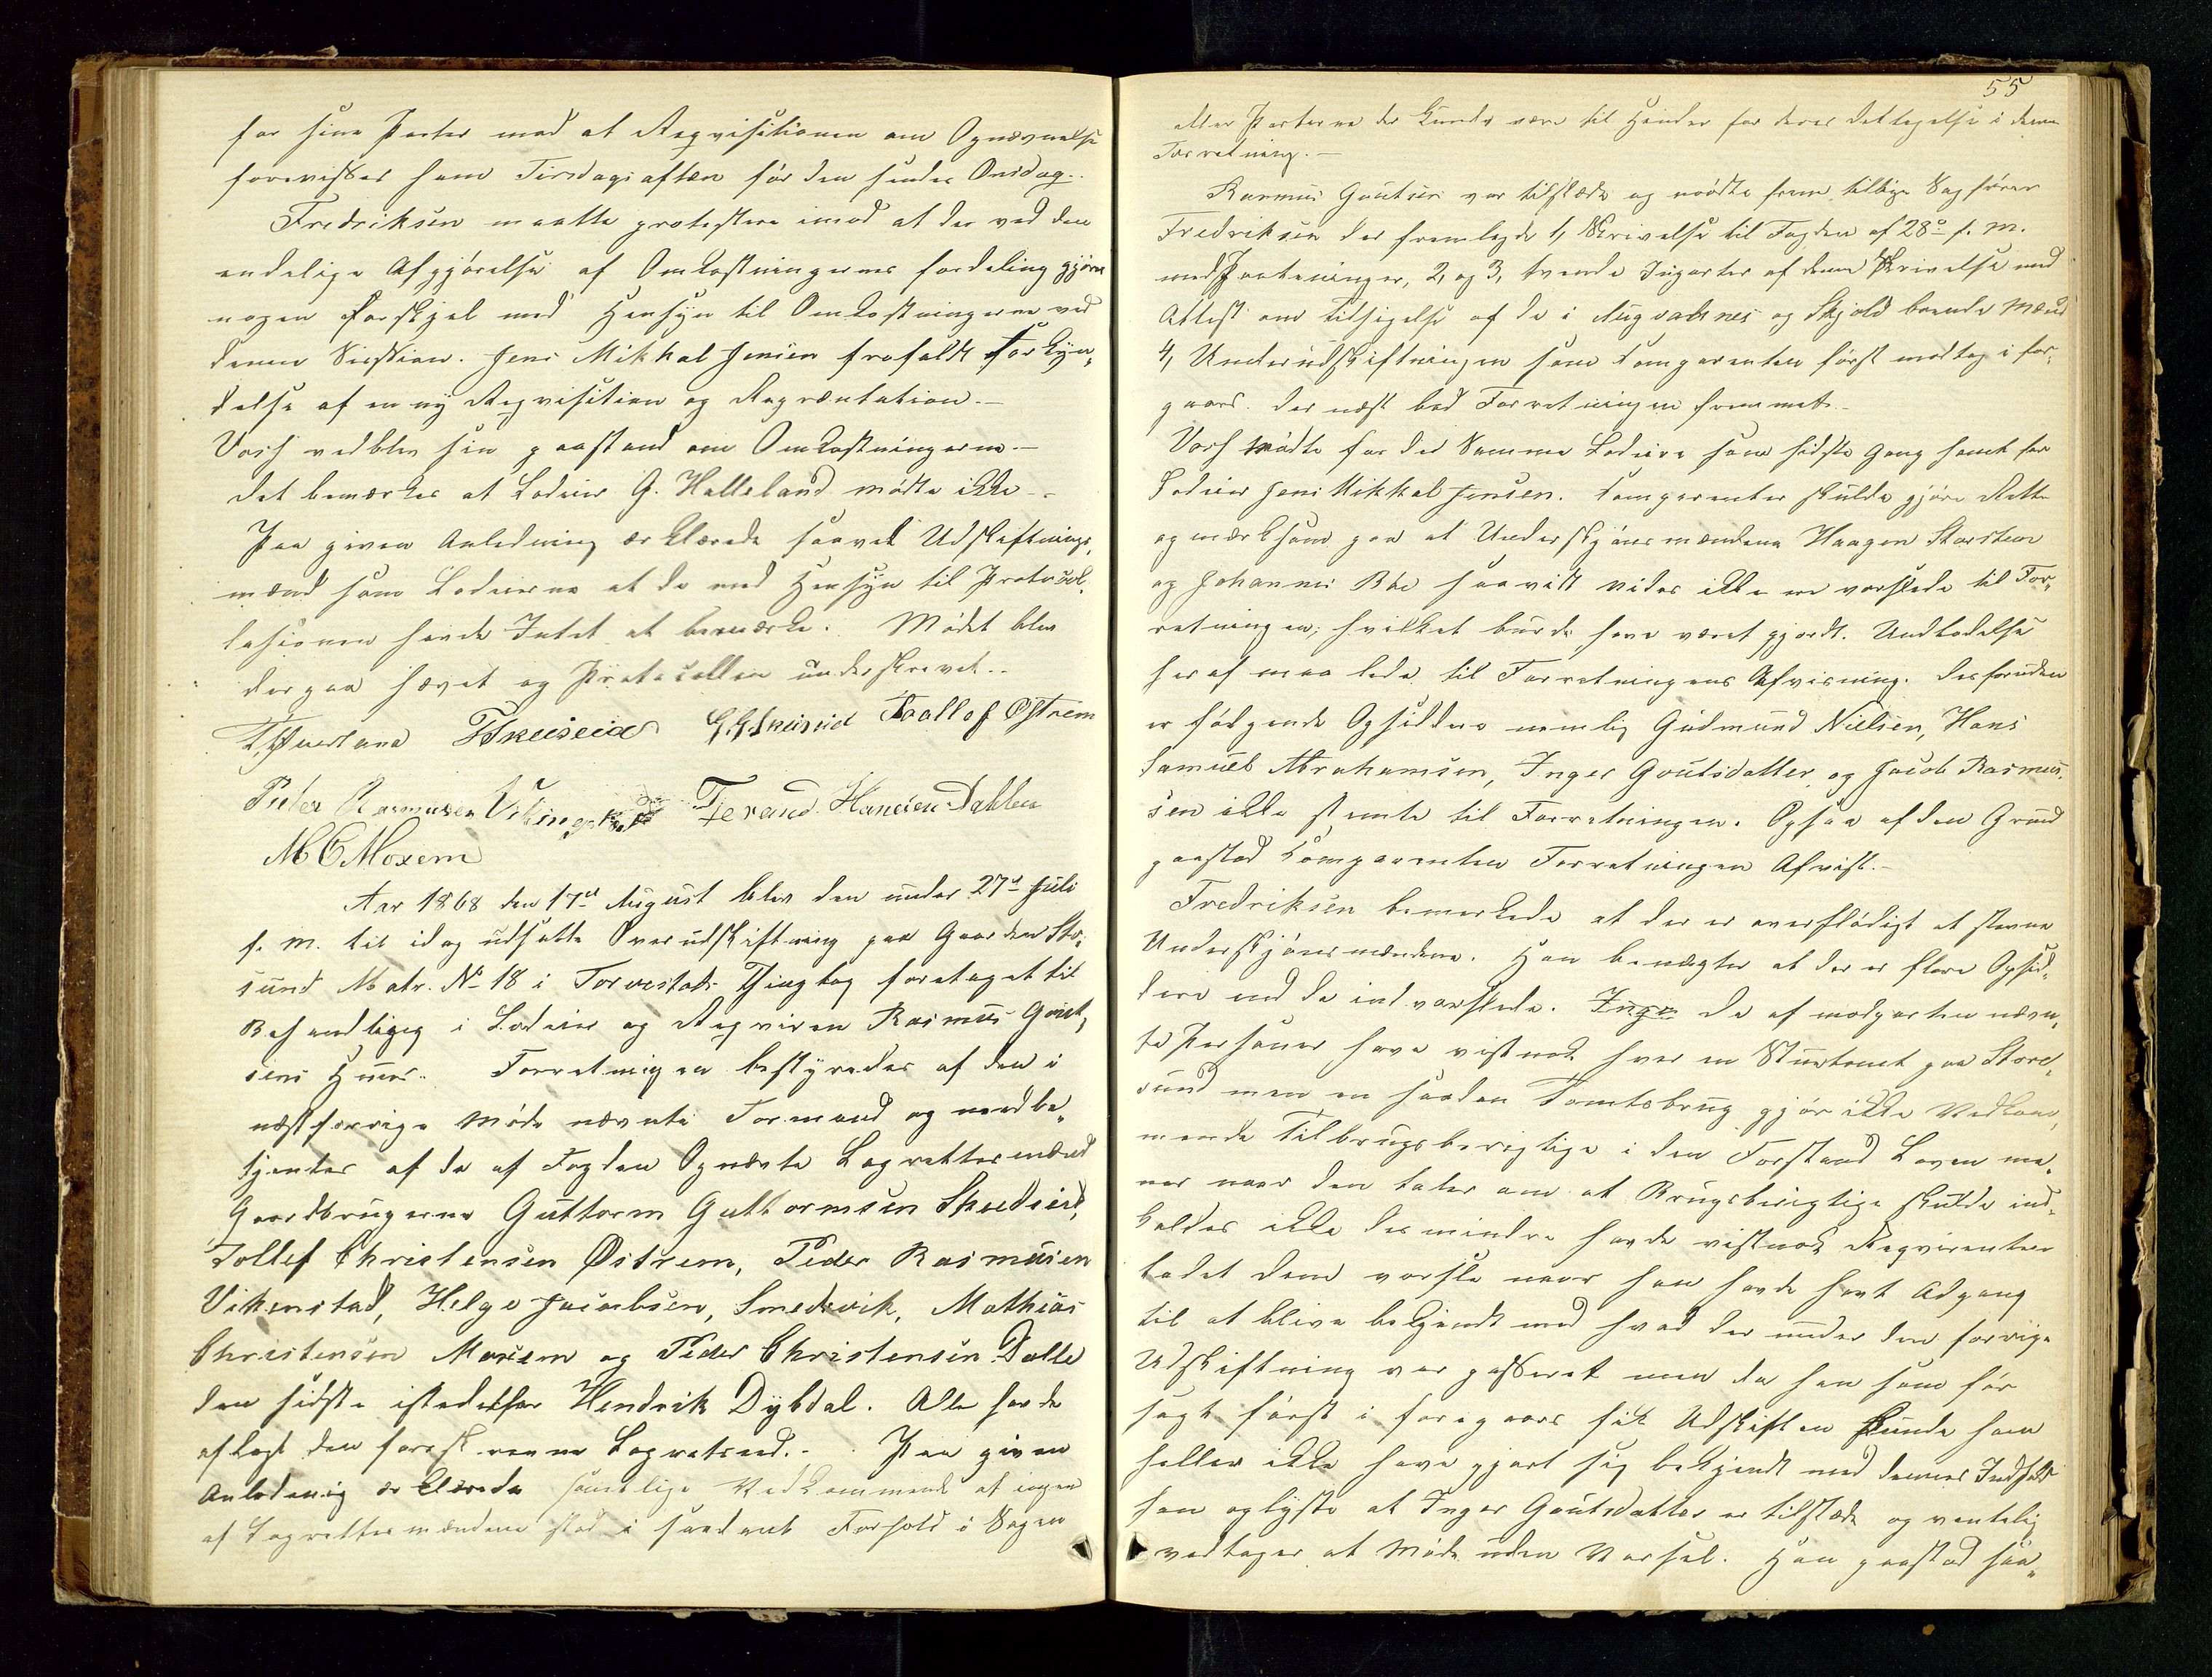 for sine Parter med at Reqvisitionen om Opnævnelse
forevises ham Tirsdagsaften før den sendes Onsdag.
Fredriksen maatte protestere imod at der ved den
endelige Afgjørelse af Omkostningernes fordeling gjøres
nogen Forskjel med Hensyn til Omkostningerne ved
denne Session. Jens Mikkal Jensen frafaldt Forkyn„
delse af en ny Reqvisition og Repræntation.—
Vorf vedblev sin paastand om Omkostningerne.—
Det bemærkes at Lodeier G. Halleland mødte ikke.-
Paa given Anledning erklærede saavel Udskiftnings„
mænd som Lodeierne at de med Hensyn til Protocol„
lationen havde Intet at bemærke. Mødet blev
derpaa hævet og Protocollen underskrevet.-
T. Qverland G G Skeiseid Tollef Østrem
Peder Rasmusen Hansen Dahlen
M C Moxem
Aar 1868 den 17de August blev den under 27de Juli
f. M. til idag udsatte Overudskiftning paa Gaarden Sto„
sund Matr. No 18 i Torvestads Thinglag foretaget til
Behandligeg i Lodeier og Reqviren Rasmus Gout„
sens Huus. Forretningen bestyredes af den i
næstforrige Møde nævnte Formand og medbe„
tjentes af de af Fogden Opnævte Lagrettesmænd
Gaardbrugerne Guttorm Guttormsen Skeiseid,
Tollef Christensen Østrem, Peder Rasmusen
Vikenstad, Helge Jacobsen, Smedsvik, Mathias
Christensen Moxem og Peder Christensen Dalle
den sidste istedetfor Hendrik Dybdal. Alle havde
aflagt den foreskrevne Lagretseed.- Paa given
Anledning erklærede samtlige Vedkommende at ingen
af Lagrettesmændene stod i saadant Forhold i Sagen
55
eller Parterne der kunde være til Hinder for deres Deltagelse i denne
Forretning.—
Rasmus Goutsen var tilstæde og mødte frem tillige Sagfører
Fredriksen der fremlagde 1, Skrivelse til Fogden af 28de f. M.
med Paategninger, 2, og 3, tvende Gjenparter af denne Skrivelse med
Attest om tilsigelse af de i Augvaldsnes og Skjold boende Mænd
4, Underudskiftningen som Komparenten først modtog i for„
gaars. Dernæst bad Forretningen fremmet.-
Vorf mødte for de Samme Lodeiere som sidste Gang samt for
Lodeier Jens Mikkal Jensen. Komparenten skulde gjøre Retten
opmærksom paa at Underskjønsmændene Haagen Storsteen
og Johannes Bøe saavidt vides ikke ere varslede til For„
retningen, hvilket burde have været gjordt. Undladelse
heraf maa lede til Forretningens Afvisning. Desforuden
er følgende Opsiddere nemlig Gudmund Nielsen, Hans
Samuel Abrahamsen, Inger Goutsdatter og Jacob Rasmus„
sen ikke stevnte til Forretningen. Ogsaa af den Grund
paastod Komparenten Forretningen Afvist.-
Fredriksen bemerkede at der er overflødigt at stevne
Underskjønsmændene. Han benægter at der er flere Opsid„
dere end de indvarslede. Inge De af modparten nævn„
te Personer have vistnok hver en Stuetomt paa Stores„
sund men en saadan Tomtebrug gjør ikke Vedkom„
mende til brugsberigtige i den Forstand Loven me„
ner naar den taler om at Brugsberigtige skulde ind„
kaldes ikke desmindre havde vistnok Reqvirenten
ladet dem varsle naar han havde havt Adgang
til at blive bekjendt med hvad der under den forrige
Udskiftning var passeret men da han som før
sagt først i foregaars fik Udskriften kunde han
heller ikke have gjort sig bekjendt med dennes Indhold
han oplyste at Inger Goutsdatter er tilstæde og ventelig
vedtager at Møde uden Varsel. Han paastod saa„